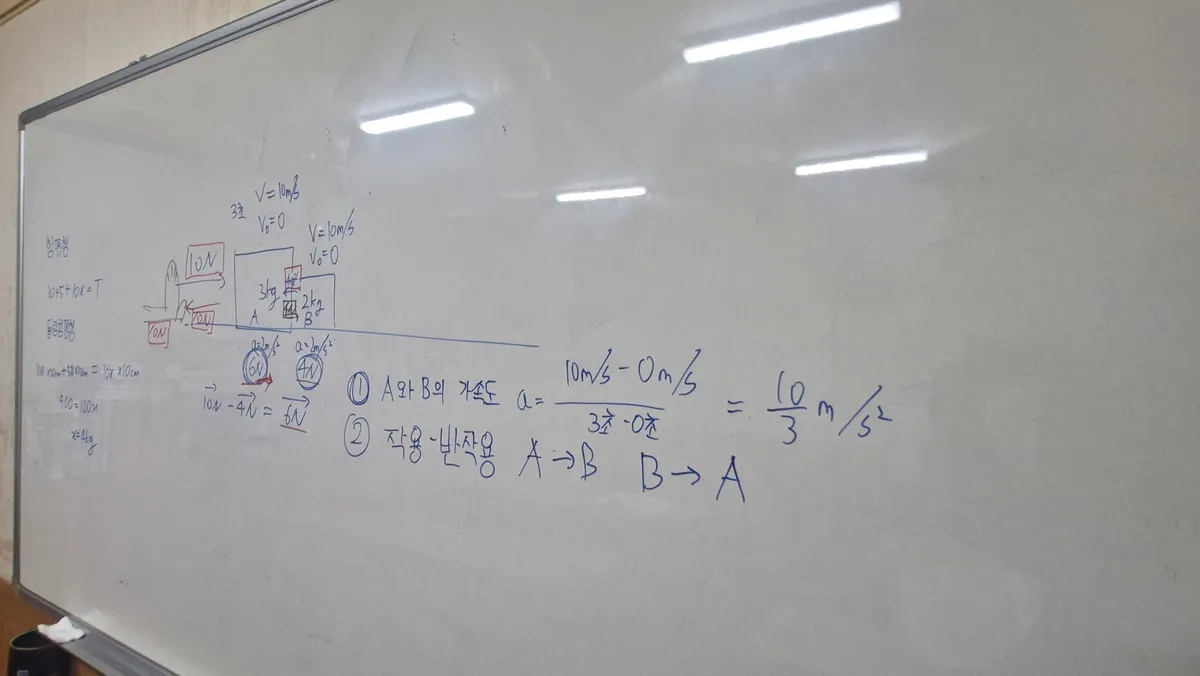 V=10m/s
3초
V₀=0
V=10m/s
V₀=0
힘평형
10+5+10x=T
돌림힘평형
= 10x×10cm
400=100x
x=4kg
10N
10N
10N
3kg
2kg
A
B
a=2m/s²
a=2m/s²
6N
4N
10N-4N=6N
① A와 B의 가속도 a= 10m/s-0m/s / 3초-0초 = 10/3 m/s²
② 작용-반작용 A→B B→A